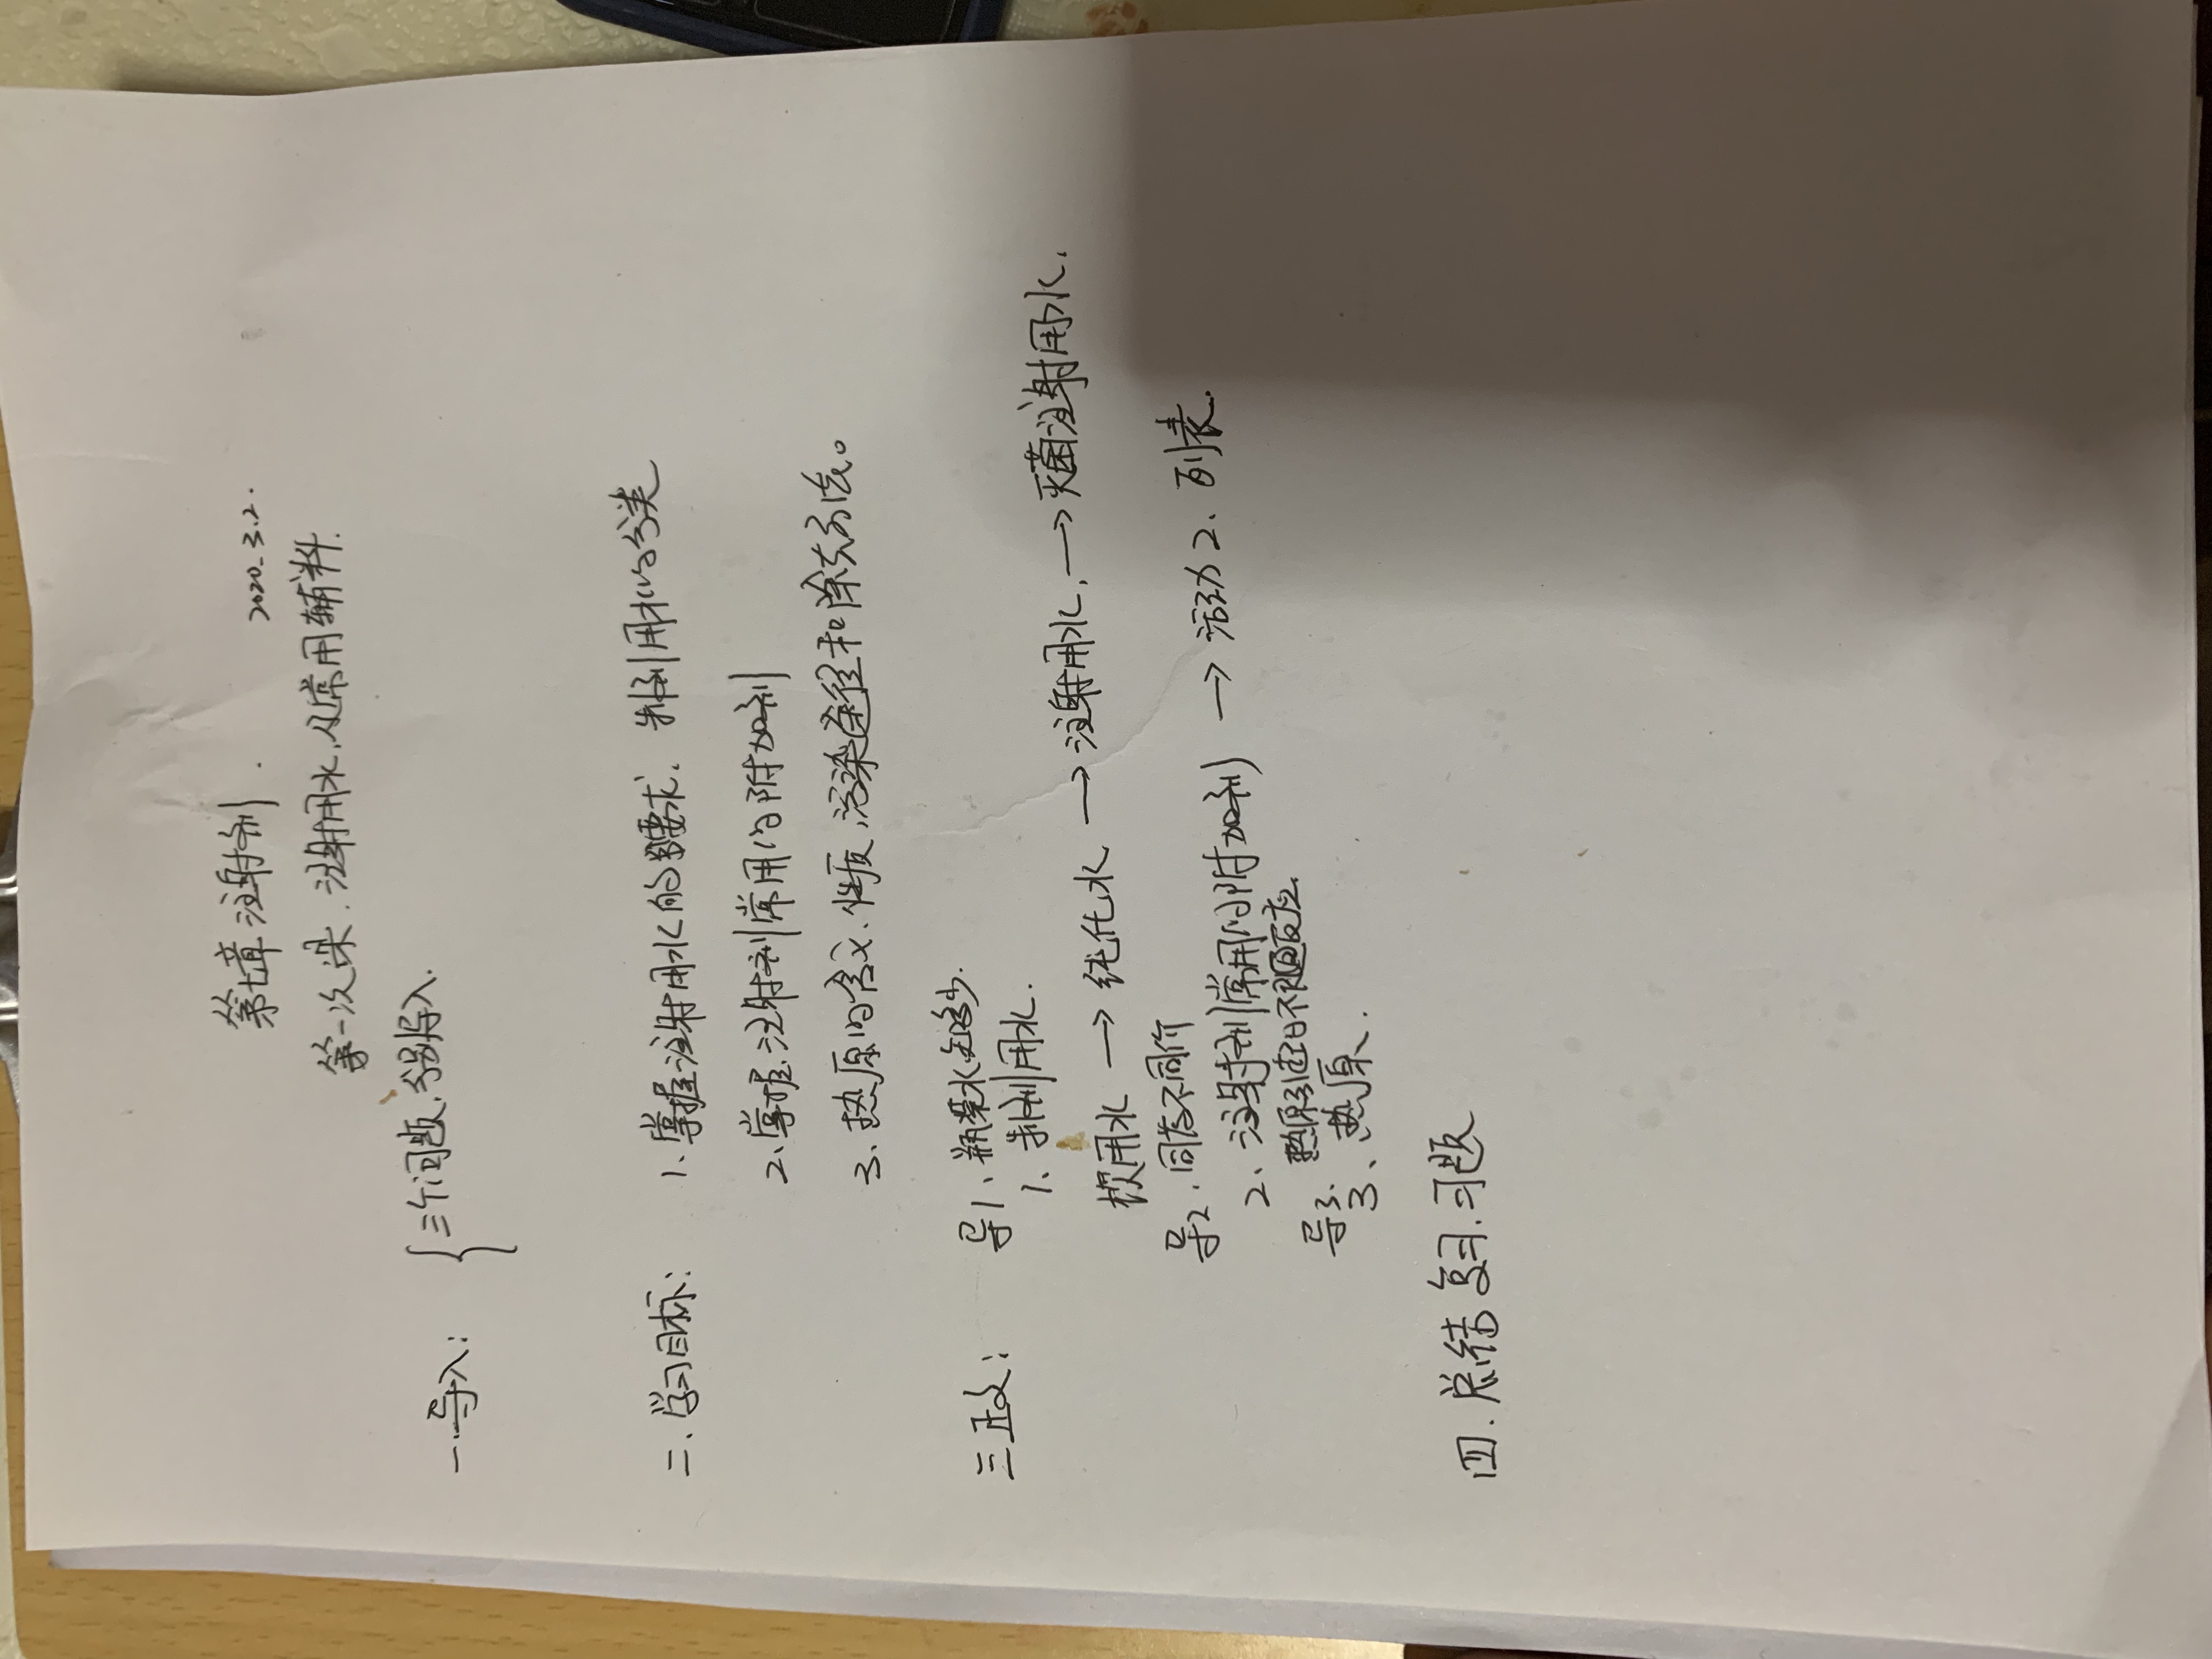 第七章 注射剂.
2020.3.2.
第一次课. 注射用水,及常用辅料.
一.导入: {三个问题,分别导入.
二.学习目标: 1.掌握注射用水的要求. 制剂用水的分类
2.掌握.注射剂常用的附加剂
3.热原的含义.性质,污染途径和除去方法。
三正文: 导1、瓶装水
1、制剂用水.
饮用水 → 纯化水 → 注射用水. → 灭菌注射用水.
导2. 同药不同价
2、注射剂常用的附加剂 → 活动2. 列表.
导3. 热原引起的不良反应.
3、热原.
四. 总结 复习. 习题